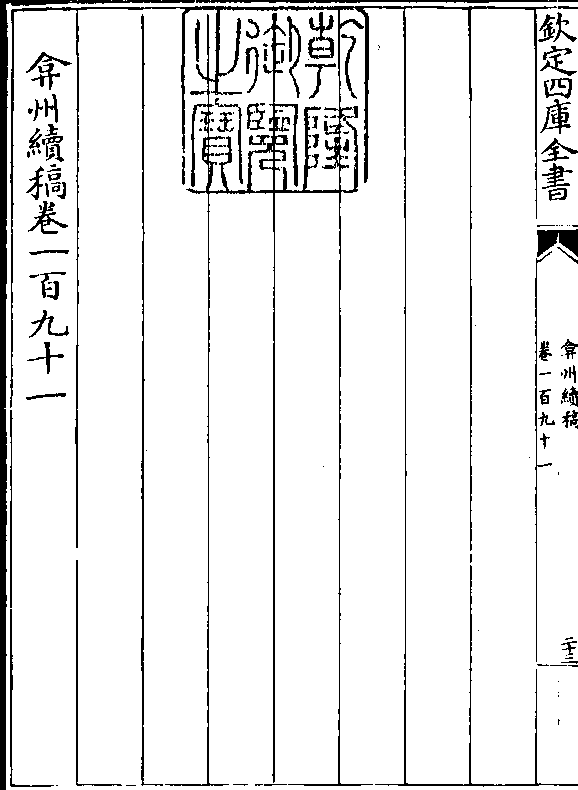 欽定四庫全書
弇州續稿
卷一百九十一
二十三
乾隆
御覽
之寶
弇州續稿卷一百九十一